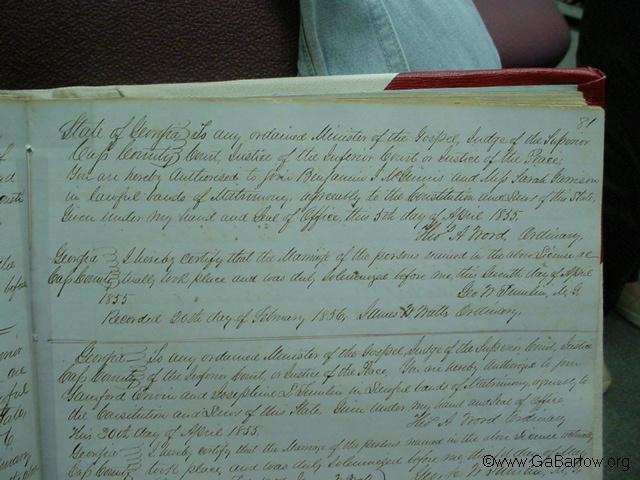 81
State of Georgia To any ordained Minister of the Gospel, Judge of the Superior
Cass County Court, Justice of the Inferior Court or Justice of the Peace;
You are hereby Authorised to join Benjamin and Miss Sarah Garrison
in lawful bands of Matrimony, agreeably to the Constitution and Laws of this State.
Given under my hand and Seal of Office, this 5th day of April 1855.
Thos A Word Ordinary.
Georgia I hereby certify that the Marriage of the persons named in the above License ac
Cass County tually took place and was duly Solemnized before me, this day of April
1855 Geo W M. G.
Recorded 20th day of February 1856, James Watts Ordinary,
Georgia To any ordained Minister of the Gospel, Judge of the Superior Court, Justice
Cass County of the Inferior Court, or Justice of the Peace. You are hereby Authorized to join
and Josephine in Lawful bands of Matrimony, agreeably to
the Constitution and Laws of this State Given under my hand and Seal of Office
This 30th day of April 1855. Thos A Word Ordinary
Georgia I hereby certify that the Marriage of the persons named in the above License actually
Cass County took place, and was duly Solemnized before me, day of
©www.GaBartow.org